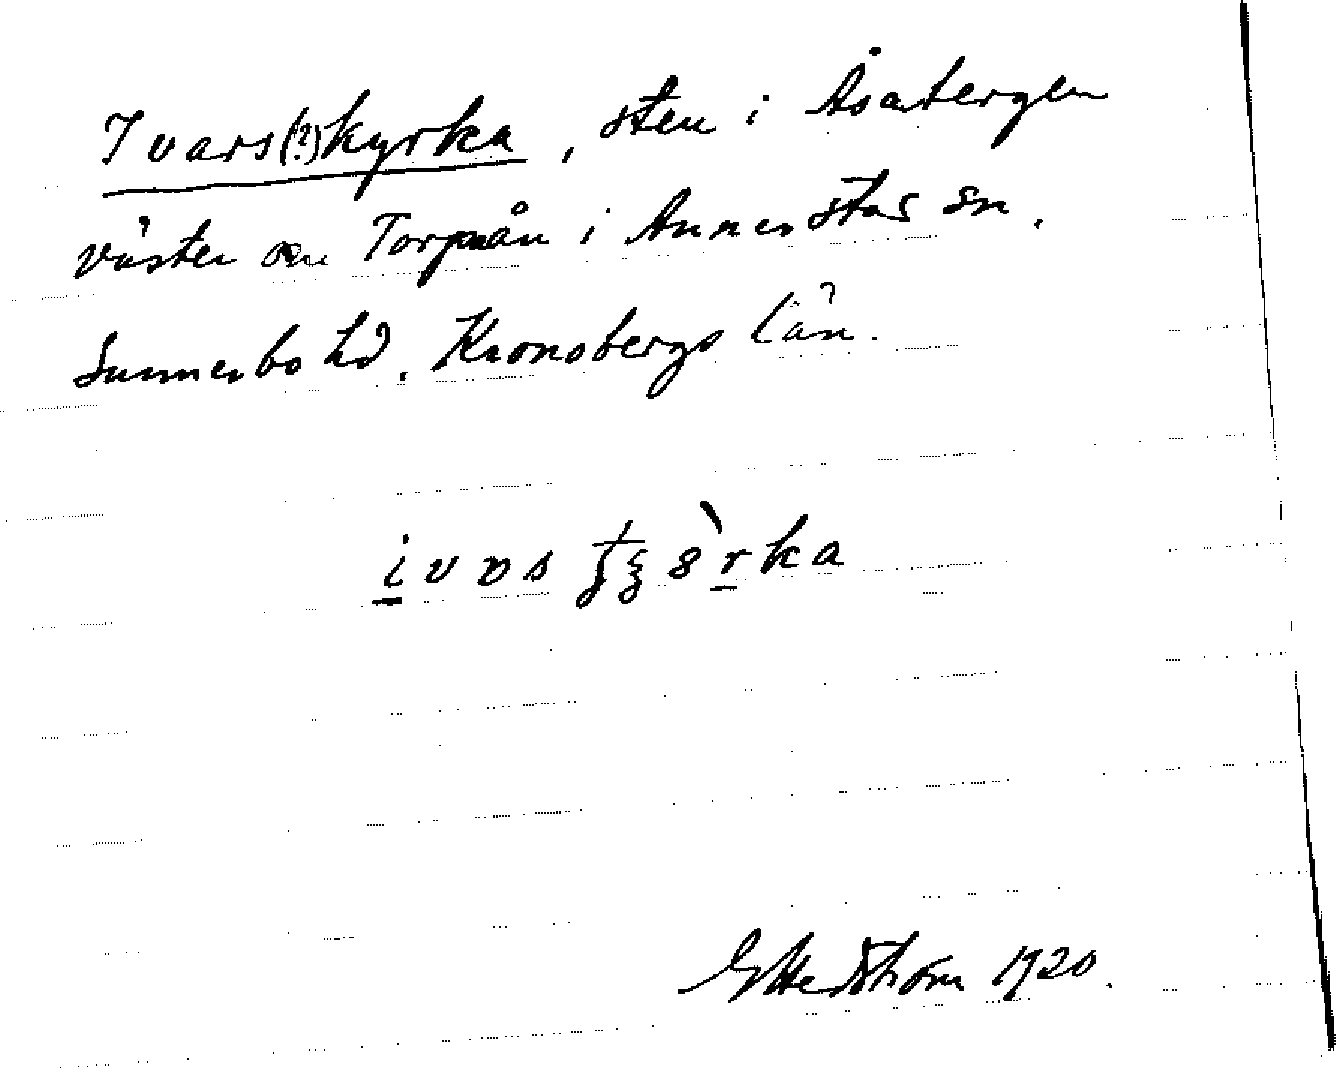 Ivars(?)kyrka, sten i Åsabergen
väster om Torpaån i Annerstad sn.
Sunnerbo hd. Kronobergs län.
G Hedström 1920.